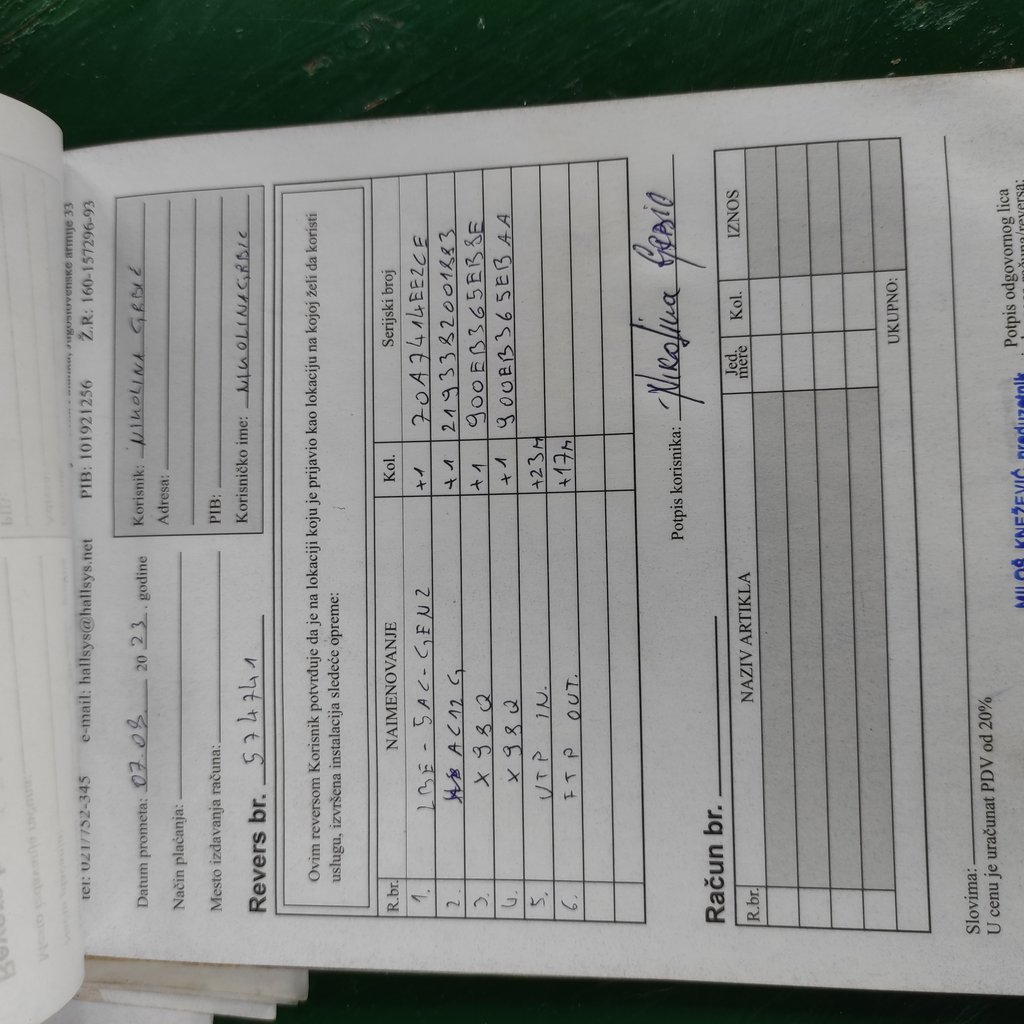 Jugoslovenske armije 33
tel: 021/752-345 e-mail: hallsys@hallsys.net PIB: 101921256 Ž.R: 160-157296-93
Datum prometa: 07.09 2023. godine
Način plaćanja:
Mesto izdavanja računa:
Korisnik: NIKOLINA GRBIĆ
Adresa:
PIB:
Korisničko ime: NIKOLINAGRBIC
Revers br. 974741
Ovim reversom Korisnik potvrđuje da je na lokaciji koju je prijavio kao lokaciju na kojoj želi da koristi
uslugu, izvršena instalacija sledeće opreme:
R.br. NAIMENOVANJE Kol. Serijski broj
1. LBE-5AC-GEN2 +1 70A7414EE2CE
2. AC12G +1 2193382001883
3. X98Q +1 900EB365EB8E
4. X98Q +1 900EB365EBAA
5. UTP IN. +23m
6. FTP OUT. +17m
Potpis korisnika: Nikolina Grbić
Račun br.
R.br. NAZIV ARTIKLA Jed mere Kol. IZNOS
UKUPNO:
Slovima:
U cenu je uračunat PDV od 20%
Potpis odgovornog lica
računa/reversa:
MILOŠ KNEŽEVIĆ preduzetnik